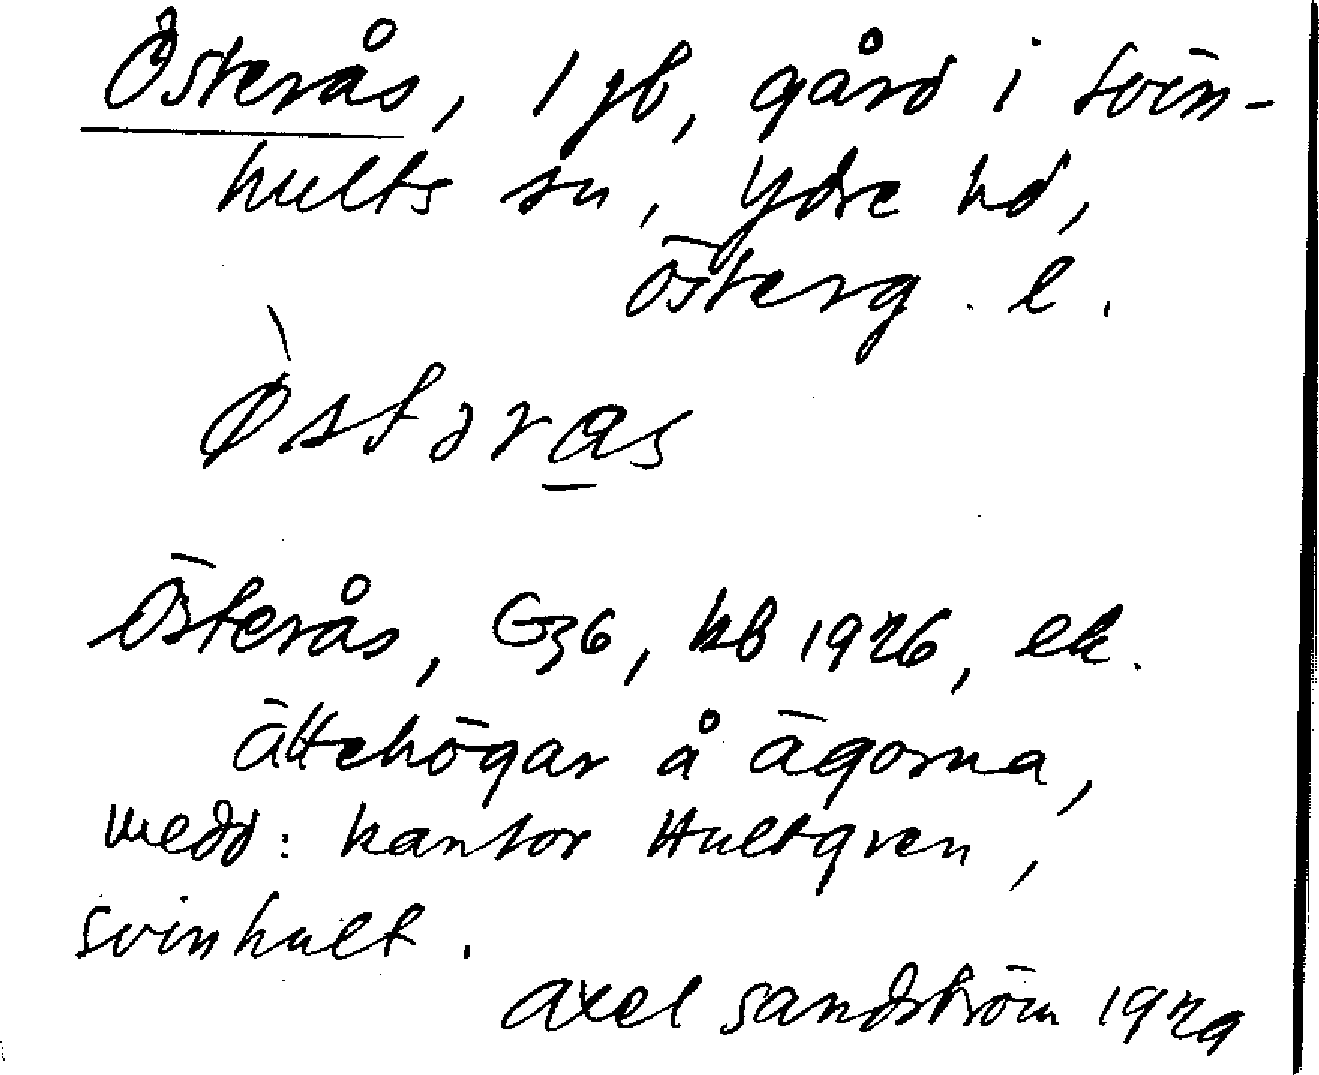 Österås, 1 gb, gård i Svin-
hults sn, Ydre hd,
Österg. l.
Østəras
Österås, G36, kb 1926, ek.
ättehögar å ägorna,
medd: kantor Hultgren,
Svinhult.
Axel Sandström 1929